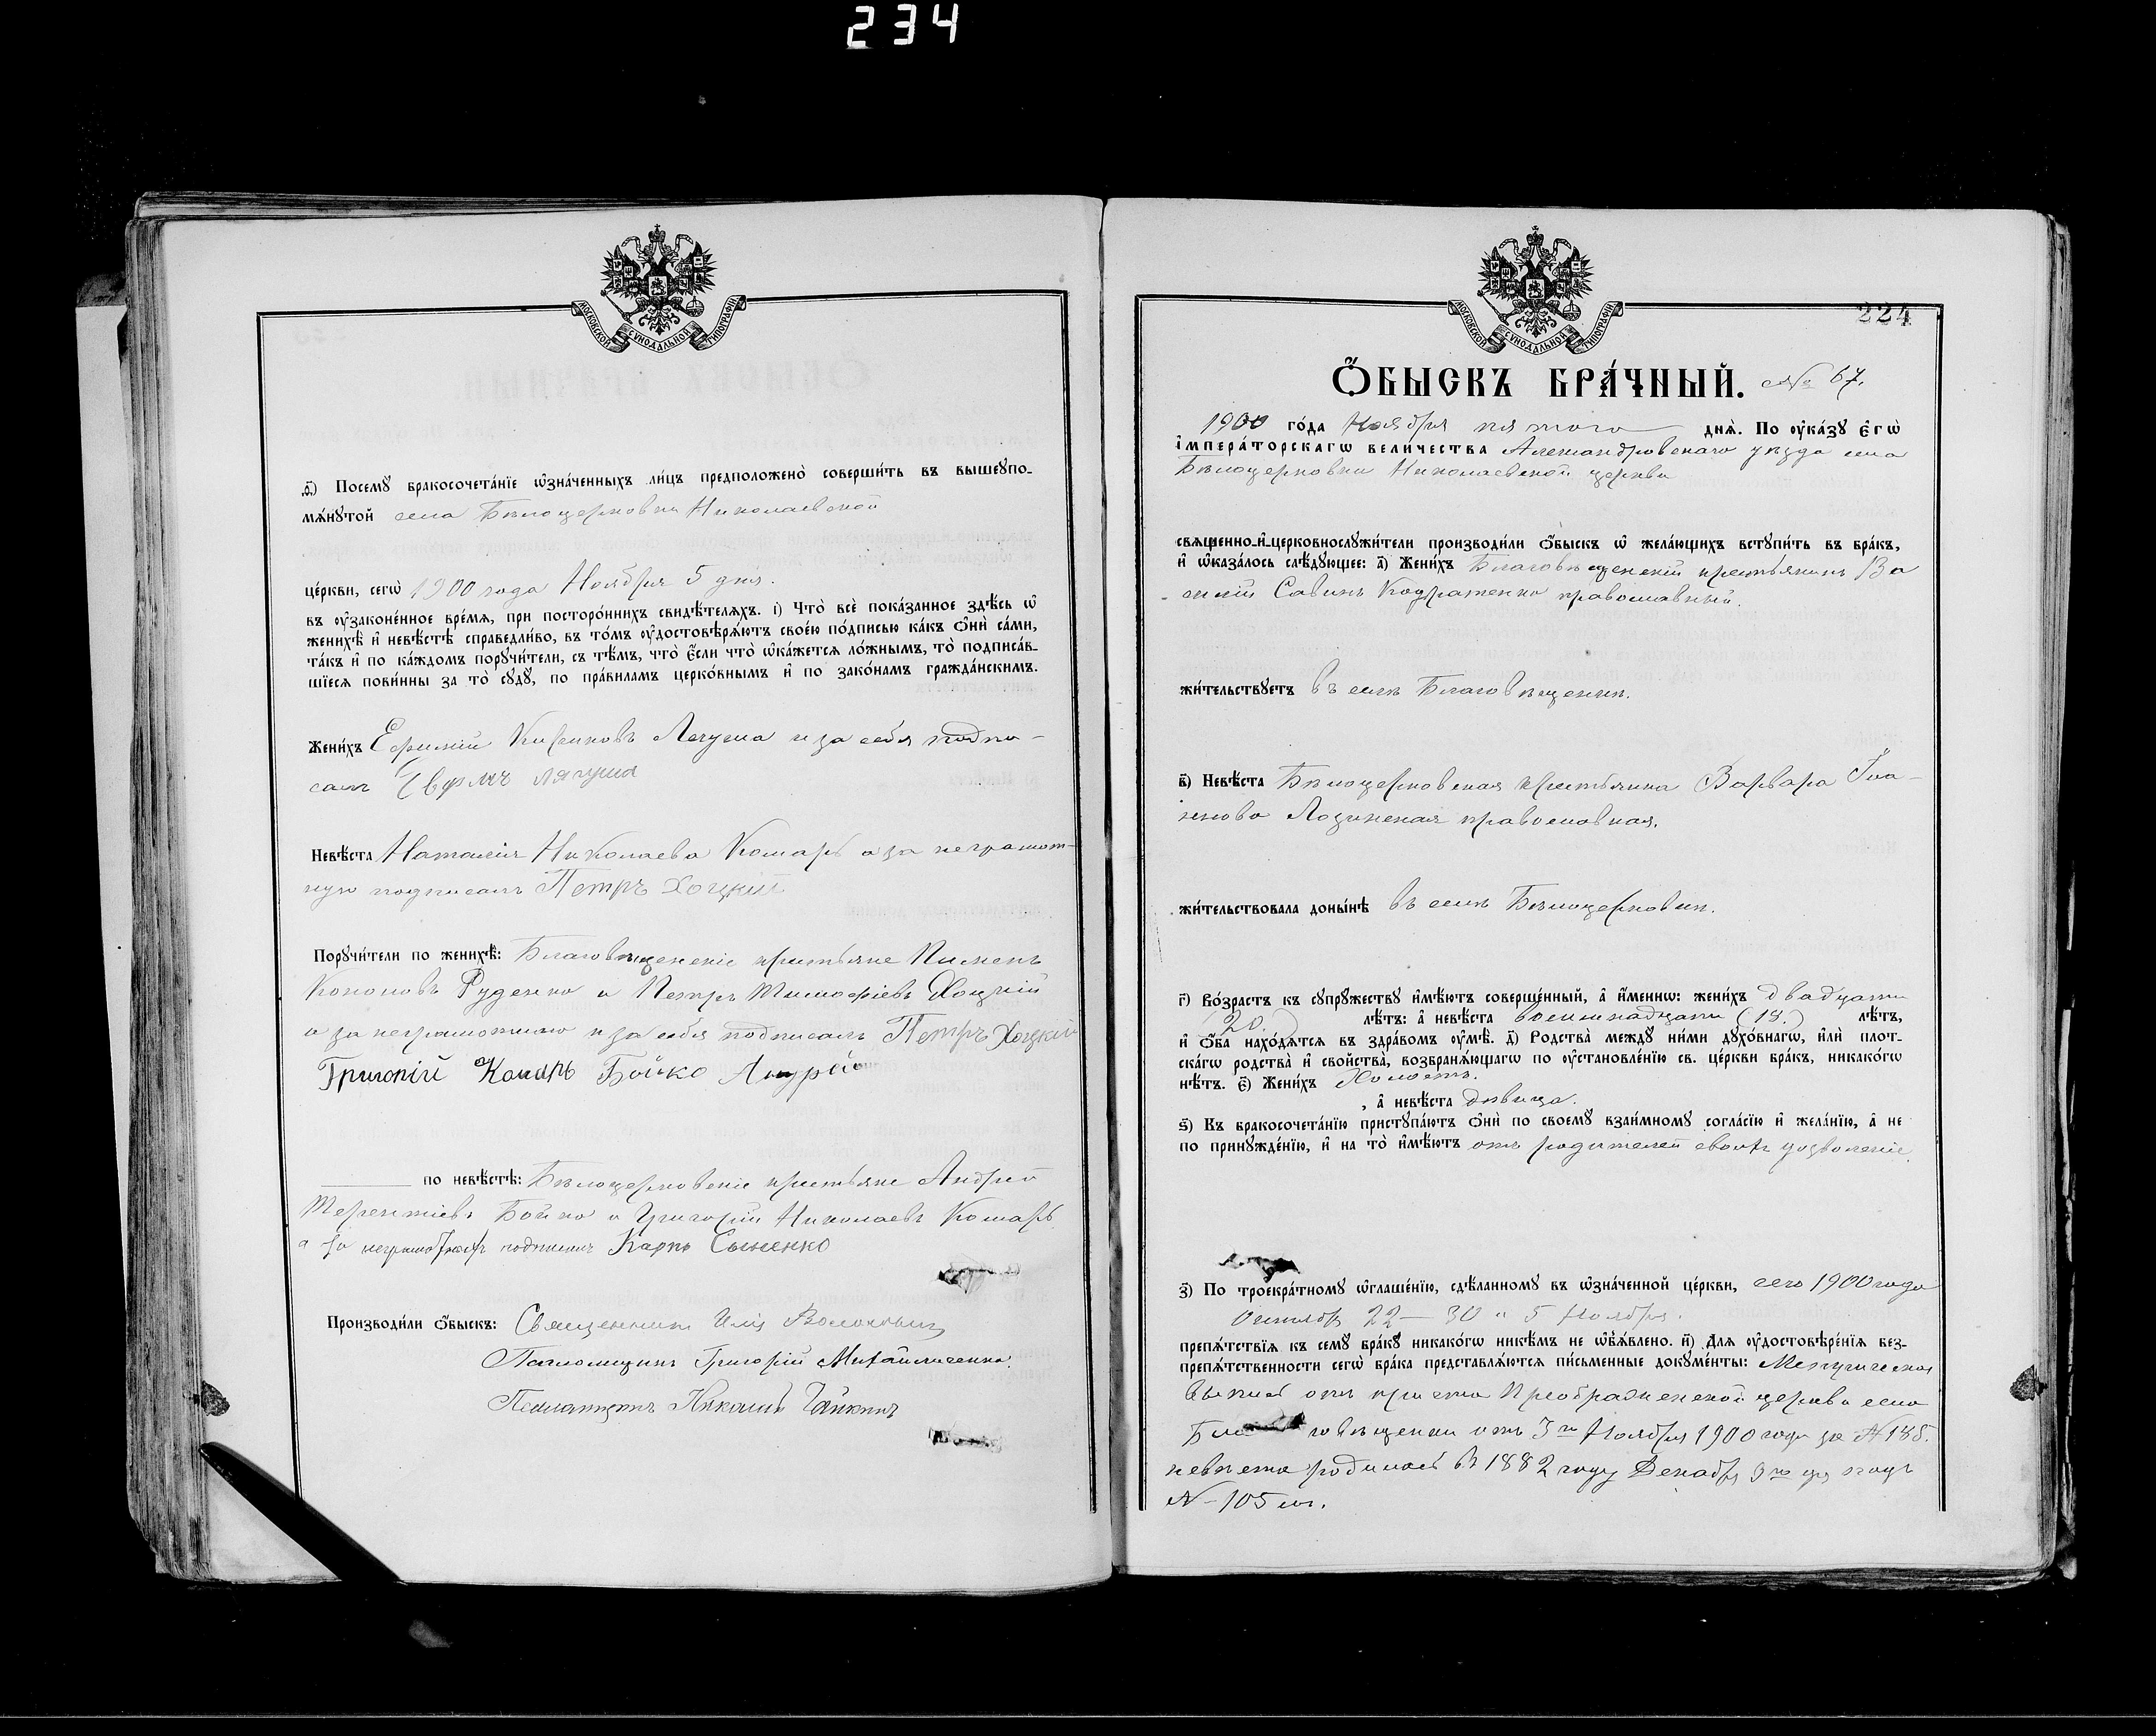 234
МОСКОВСКОЙ СѴНОДАЛЬНОЙ ТИПОГРАФІИ
ѳ҃) Посемꙋ̀ бракосочета́нїе ѡ҆зна́ченныхъ ли́цъ предположено̀ соверши́ть въ вышеꙋпо-
мѧ́нꙋтой села Бѣлоцерковки Николаевской
це́ркви, сегѡ̀ 1900 года Ноября 5 дня.
въ ᲂу҆зако́ненное вре́мѧ, при посторо́ннихъ свидѣ́телѧхъ. і҃) Что̀ всѐ пока́занное здѣ́сь ѡ҆
женихѣ̀ и҆ невѣ́стѣ справедли́во, въ то́мъ ᲂу҆достовѣрѧ́ютъ свое́ю по́дписью ка́къ ѻ҆нѝ са́ми,
та́къ и҆ по ка́ждомъ порꙋчи́тели, съ тѣ́мъ, что̀ є҆́сли что̀ ѡ҆ка́жетсѧ ло́жнымъ, то̀ подписа́в-
шїесѧ пови́нны за то̀ сꙋдꙋ̀, по пра́виламъ церко́внымъ и҆ по зако́намъ гражда́нскимъ.
Жени́хъ Ефимій Лягуша и за себя подпи-
салъ Лягуша
Невѣ́ста Наталія Николаева Комарь а за неграмот-
ную подписалъ Петръ Хоцкій
Порꙋчи́тели по женихѣ̀: Благовѣщенскіе крестьяне Пименъ
Кононовъ Руденко и Петръ Тимофіевъ Хоцкій
а за неграмотнаго и за себя подписалъ Петръ Хоцкій
Григорій Комарь Бойко Андрей
по невѣ́стѣ: Бѣлоцерковскіе крестьяне Андрей
Терентіевъ Бойко и Григорій Николаевъ Комарь
а за подписалъ Карпъ
Производи́ли ѻ҆́быскъ: Священникъ Илія
Псаломщикъ Григорій Михайличенко.
Псаломщикъ Николай
224
МОСКОВСКОЙ СѴНОДАЛЬНОЙ ТИПОГРАФІИ
Ѻ҆́БЫСКЪ БРА́ЧНЫЙ. № 67.
1900 го́да Ноября пятого днѧ̀. По ᲂу҆ка́зꙋ Є҆гѡ̀
І҆мпера́торскагѡ вели́чества Александровскаго уѣзда села
Бѣлоцерковки Николаевской церкви
свѧще́нно-и҆-церковнослꙋжи́тели производи́ли ѻ҆́быскъ ѡ҆ жела́ющихъ встꙋпи́ть въ бра́къ,
и҆ ѡ҆каза́лось слѣ́дꙋющее: а҃) Жени́хъ Благовѣщенскій крестьянинъ Ва
силій Савинъ Кодратенко православный.
жи́тельствꙋетъ въ селѣ Благовѣщенки.
в҃) Невѣ́ста Бѣлоцерковская крестьянка Варвара Іоа-
ннова православная.
жи́тельствовала доны́нѣ въ селѣ Бѣлоцерковки.
г҃) Во́зрастъ къ сꙋпрꙋ́жествꙋ и҆мѣ́ютъ соверше́нный, а҆ и҆́меннѡ: жени́хъ двадцати
(20.) лѣ́тъ: а҆ невѣ́ста восемнадцати (18.) лѣ́тъ,
и҆ ѻ҆́ба нахо́дѧтсѧ въ здра́вомъ ᲂу҆мѣ̀. д҃) Родства̀ междꙋ̀ ни́ми дꙋхо́внагѡ, и҆лѝ плот-
ска́гѡ родства̀ и҆ сво́йства̀, возбранѧ́ющагѡ по ᲂу҆становле́нїю св. це́ркви бра́къ, никако́гѡ
нѣ́тъ. є҃) Жени́хъ Холостъ.
, а҆ невѣ́ста дѣвица.
ѕ҃) Къ бракосочета́нїю пристꙋпа́ютъ ѻ҆нѝ по своемꙋ̀ взаи́мномꙋ согла́сїю и҆ жела́нїю, а҆ не
по принꙋжде́нїю, и҆ на то̀ и҆мѣ́ютъ отъ родителей своихъ дозволеніе.
з҃) По троекра́тномꙋ ѡ҆глаше́нїю, сдѣ́ланномꙋ въ ѡ҆зна́ченной це́ркви, сего 1900 года
Октября 22 — 30 и 5 Ноября.
препѧ́тствїѧ къ семꙋ̀ бра́кꙋ никако́гѡ никѣ́мъ не ѡ҆б̾ѧ́влено. и҃) Длѧ ᲂу҆достовѣре́нїѧ без-
препѧ́тственности сегѡ̀ бра́ка представлѧ́ютсѧ пи́сьменные докꙋме́нты: Метрическая
выпись отъ причта Преображенской церкви села
Благовѣщенки отъ 3го Ноября 1900 года за № 185.
невѣста родилась въ 1882 году Декабря
№ 105